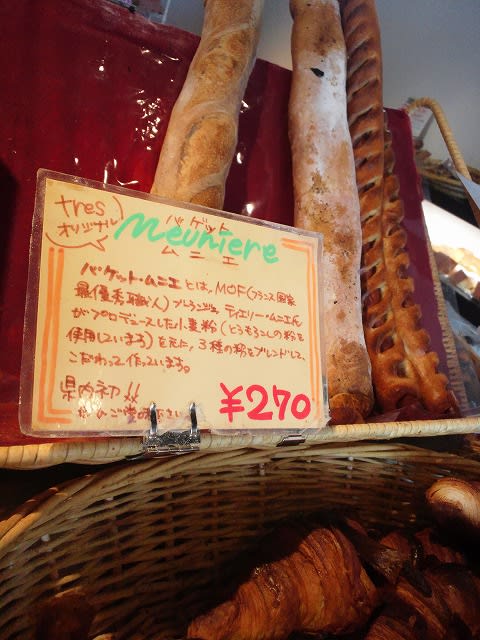 tres
オリジナル
バゲット
Meuniere
ムニエ
バゲット・ムニエとは、MOF(フランス国家
最優秀職人)ブランジェ ティエリー・ムニエ氏
がプロデュースした小麦粉(とうもろこしの粉を
使用しています)を元に、3種の粉をブレンドして、
こだわって作っています。
県内初!!
ぜひご賞味下さい
¥270